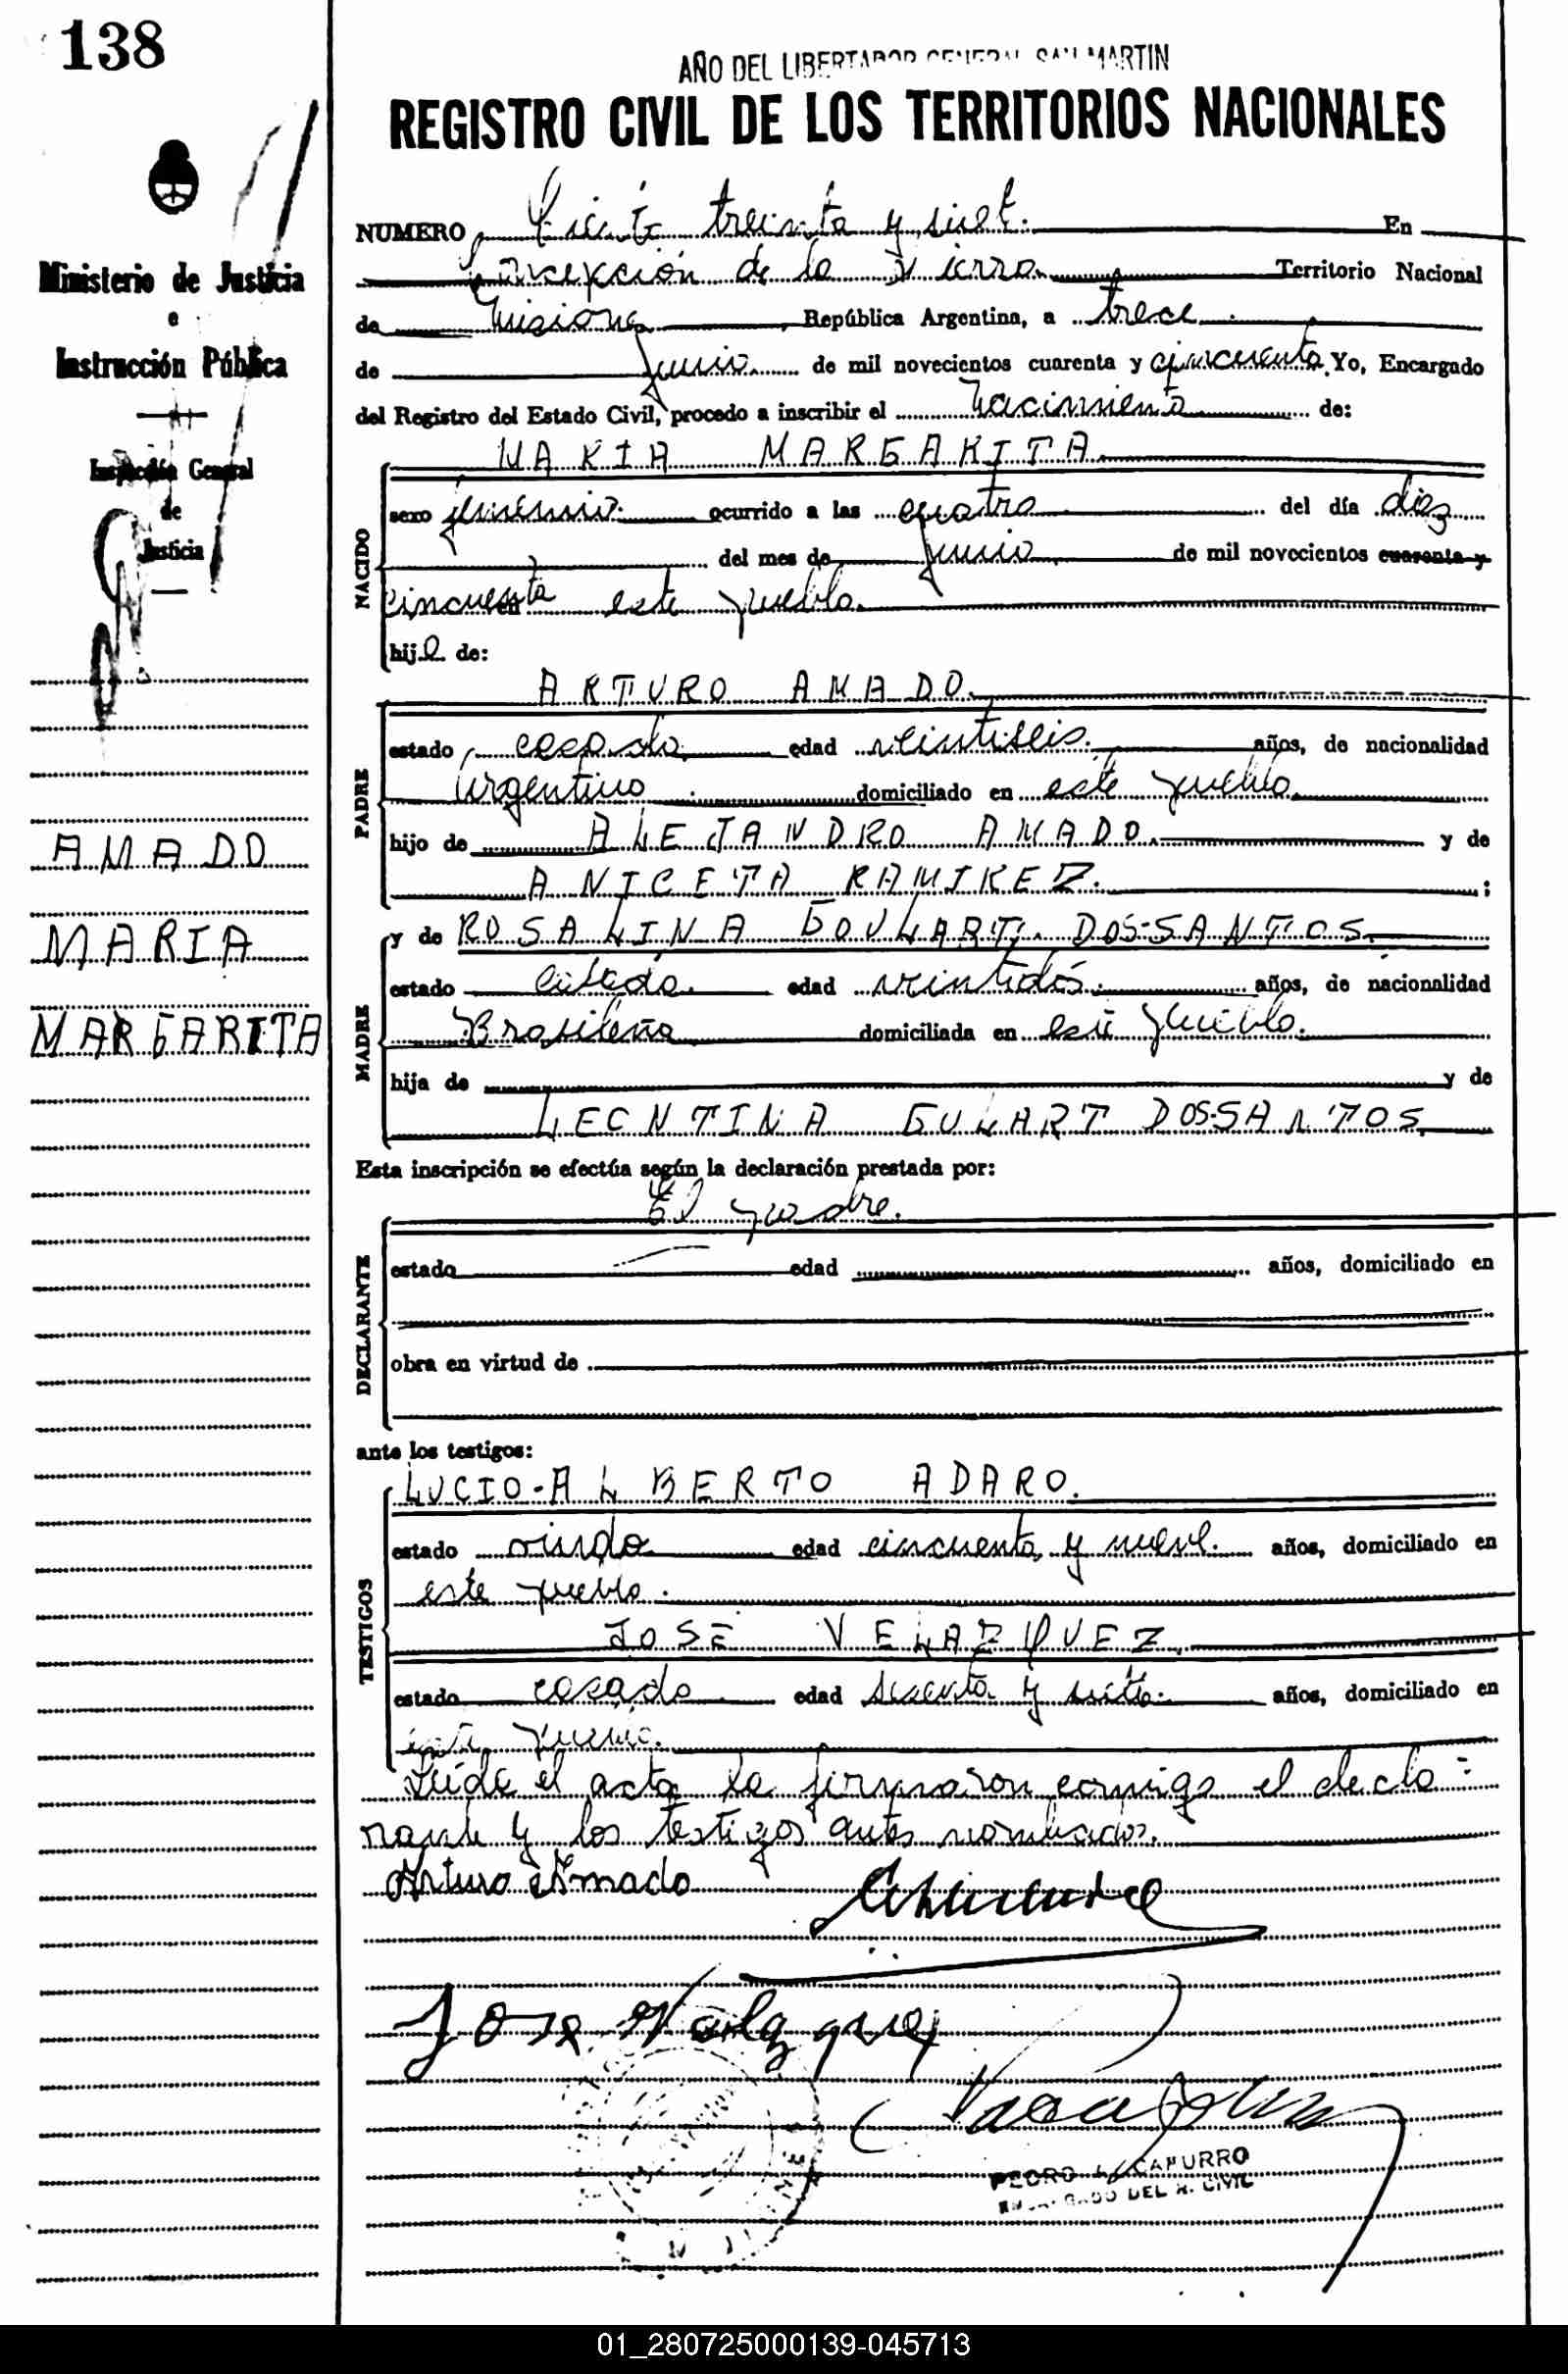 138
AÑO DEL LIBERTADOR GENERAL SAN MARTIN
REGISTRO CIVIL DE LOS TERRITORIOS NACIONALES
Ministerio de Justicia
e
Instrucción Pública
Inspección General
de
Justicia
AMADO
MARIA
MARGARITA
NUMERO Ciento treinta y siete. En
Concepción de la Sierra Territorio Nacional
de Misiones República Argentina, a trece
de junio de mil novecientos cuarenta y cincuenta Yo, Encargado
del Registro del Estado Civil, procedo a inscribir el nacimiento de:
MARIA MARGARITA
NACIDO
sexo femenino ocurrido a las cuatro del día diez
del mes de junio de mil novecientos cuarenta y
cincuenta en este pueblo.
hija de:
ARTURO AMADO.
PADRE
estado casado edad veintiseis. años, de nacionalidad
Argentino domiciliado en este pueblo.
hijo de ALEJANDRO AMADO. y de
ANICETA RAMIREZ. ;
MADRE
y de ROSALINA GOULART DOS-SANTOS.
estado casada. edad veintidós. años, de nacionalidad
Brasileña domiciliada en este pueblo.
hija de y de
LEONTINA GULART DOS-SANTOS.
Esta inscripción se efectúa según la declaración prestada por:
El padre.
DECLARANTE
estado edad años, domiciliado en
obra en virtud de
ante los testigos:
TESTIGOS
LUCIO-ALBERTO ADARO.
estado viudo edad cincuenta y nueve. años, domiciliado en
este pueblo.
JOSE VELAZQUEZ.
estado casado edad sesenta y siete. años, domiciliado en
este pueblo.
Leída el acta la firmaron conmigo el decla=
rante y los testigos antes nombrados.
Arturo Amado
Jose Velazquez
PEDRO CAPURRO
ENCARGADO DEL R. CIVIL
01_280725000139-045713